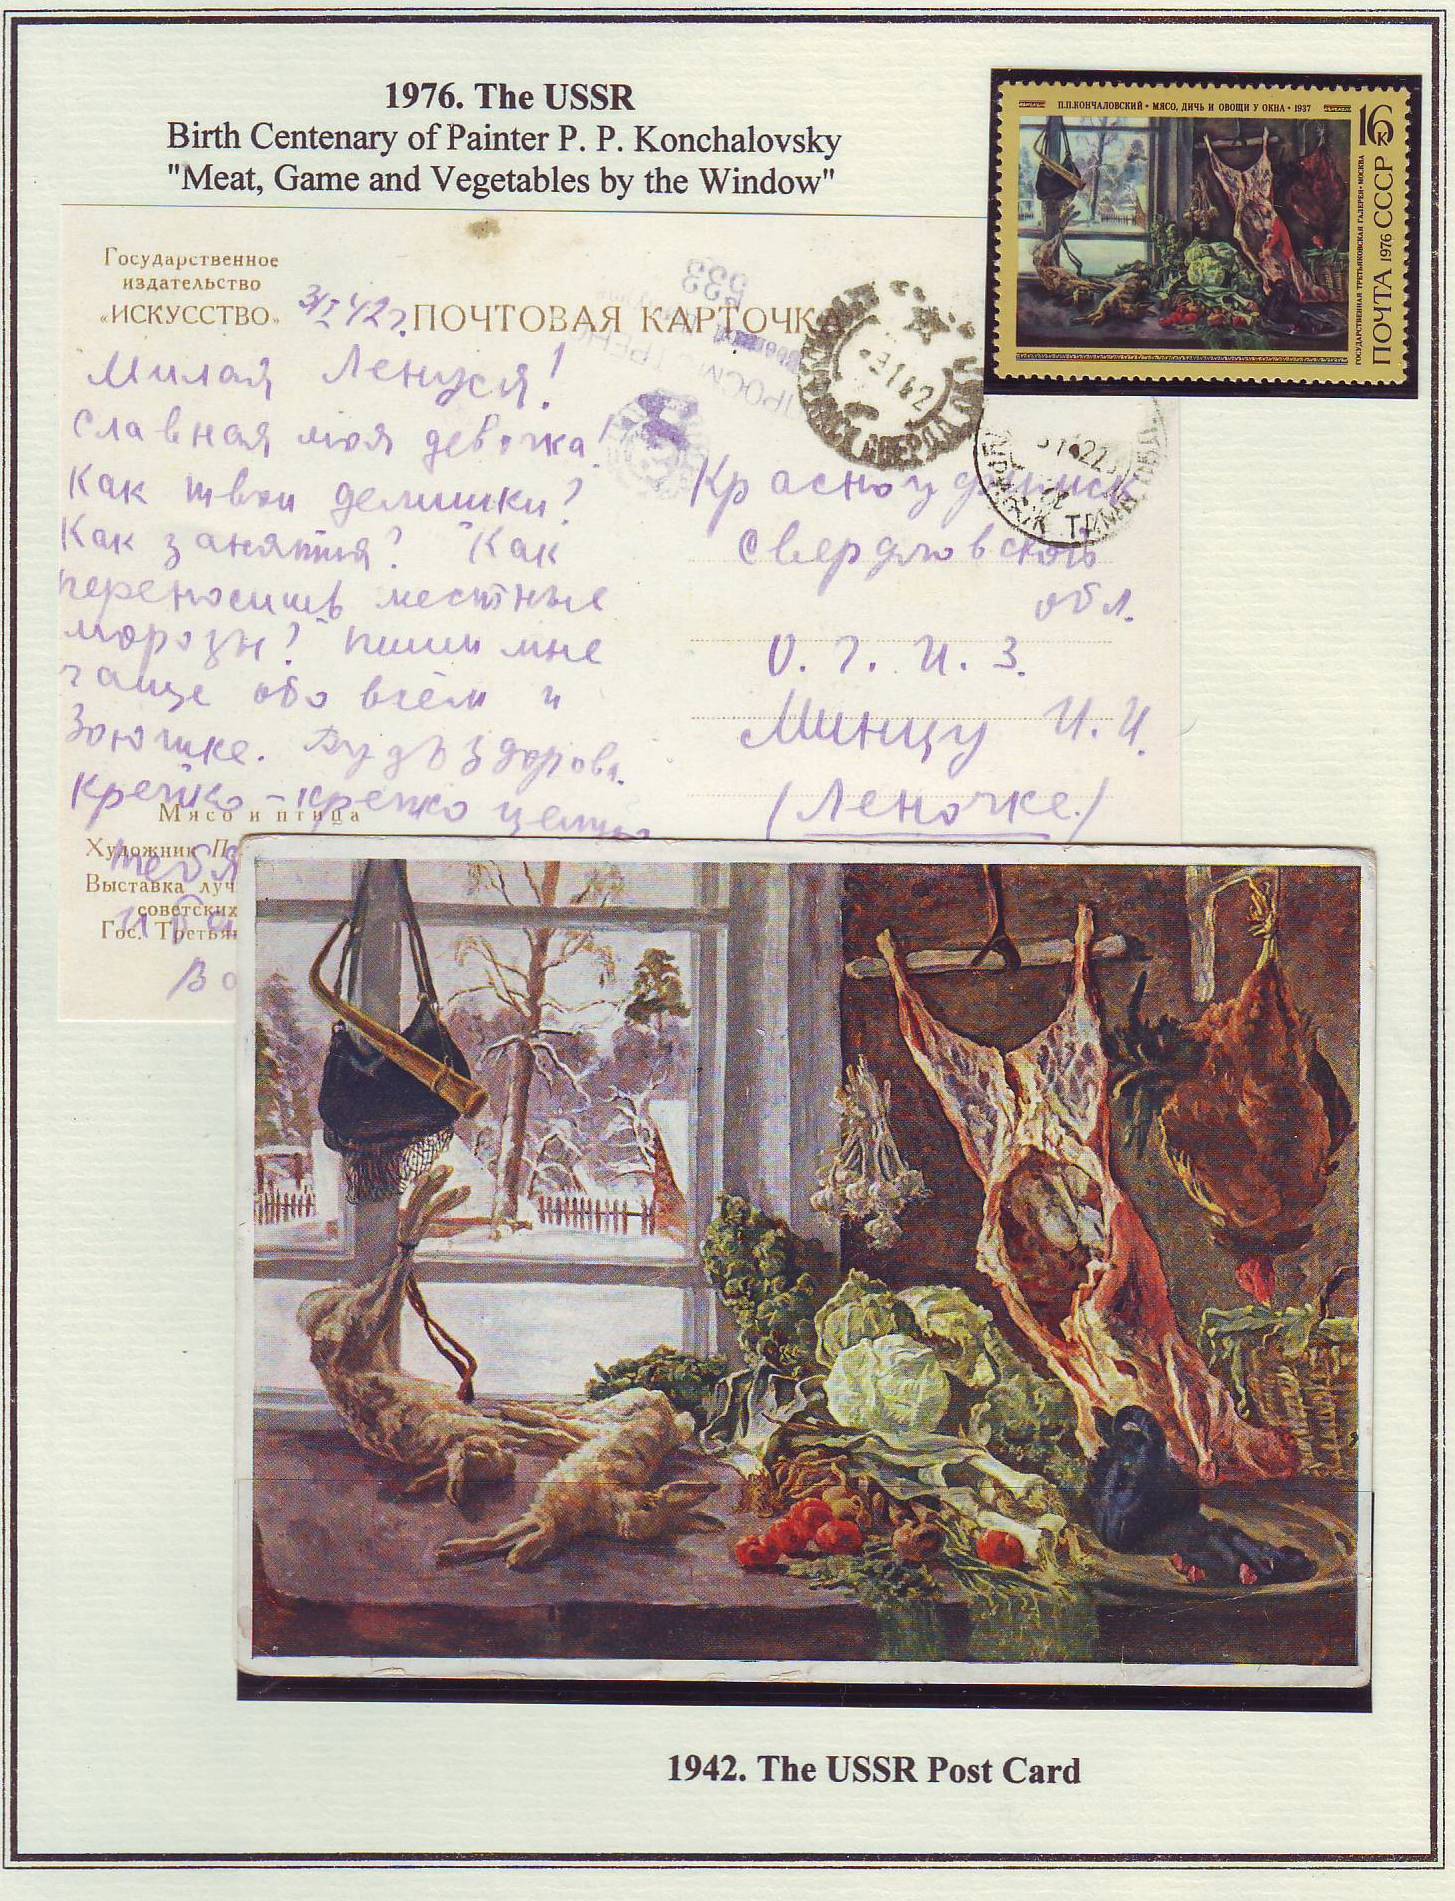 1976. The USSR
Birth Centenary of Painter P. P. Konchalovsky
"Meat, Game and Vegetables by the Window"
П.П.КОНЧАЛОВСКИЙ • МЯСО, ДИЧЬ И ОВОЩИ У ОКНА • 1937
16 к
ГОСУДАРСТВЕННАЯ ТРЕТЬЯКОВСКАЯ ГАЛЕРЕЯ • МОСКВА
ПОЧТА 1976 СССР
Государственное
издательство
«ИСКУССТВО»
ПОЧТОВАЯ КАРТОЧКА
533
Милая Ленуся!
Славная моя девочка!
Как твои делишки?
Как занятия? Как
переносишь местные
морозы? Пиши мне
чаще обо всём и
Зоюшке. Будь здорова.
Крепко-крепко целую
тебя
Красноуфимск
Свердловской
обл.
О. Г. И. З.
Минцу И. И.
(Леночке.)
Мясо и птица
Художник П
Выставка луч
советских
Гос. Третьяк
1942. The USSR Post Card